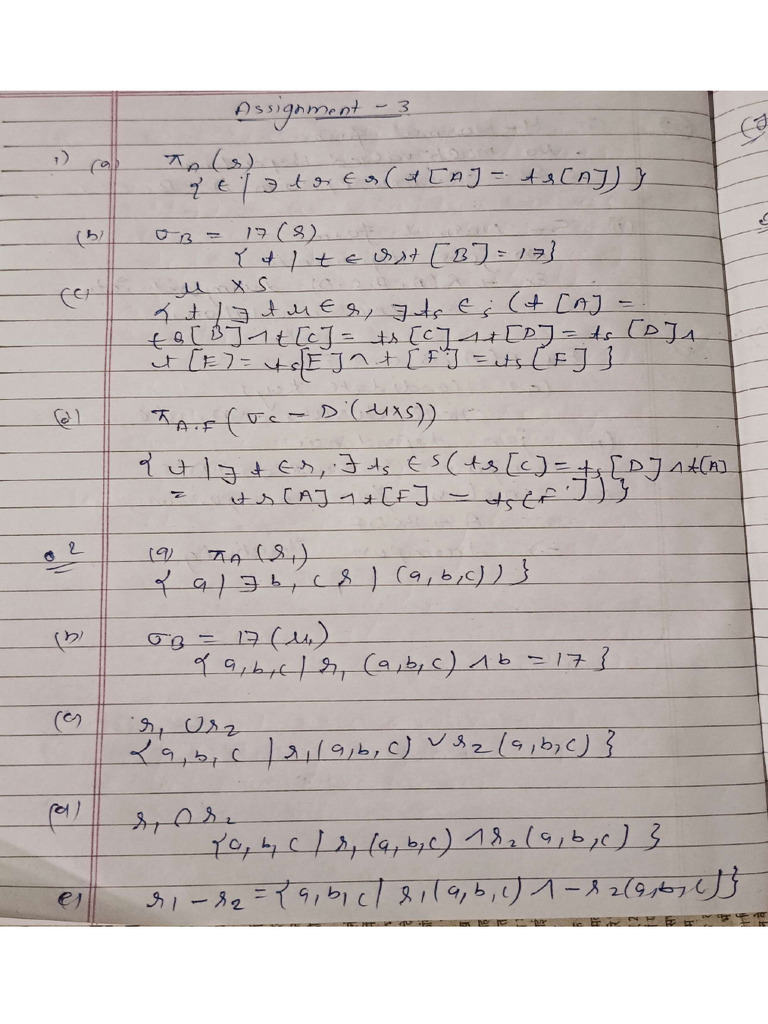 Assignment - 3
1) (a) π_A (r)
{ t | ∃ tr ∈ r ( t [A] = tr [A]) }
(b) σ_B = 17 (r)
{ t | t ∈ r ∧ t [B] = 17}
(c) r × S
{ t | ∃ tr ∈ r, ∃ ts ∈ s ( t [A] =
tr [B] ∧ t[C] = tr [C] ∧ t [D] = ts [D] ∧
t [E] = ts[E] ∧ t [F] = ts [F] }
(d) π_A.F ( σ_C - D (r×s))
{ t | ∃ t ∈ r, ∃ ts ∈ S ( tr [C] = ts [D] ∧ t[A]
= tr [A] ∧ t [F] = ts [F]) }
Q 2 (a) π_A (r₁)
{ a | ∃ b, c r | (a,b,c)) }
(b) σ_B = 17 (r₁)
{ a, b, c | r₁ (a,b,c) ∧ b = 17 }
(c) r₁ ∪ r₂
{ a, b, c | r₁(a,b,c) ∨ r₂ (a,b,c) }
(d) r₁ ∩ r₂
{a, b, c | r₁ (a,b,c) ∧ r₂ (a,b,c) }
e) r₁ - r₂ = {a,b,c | r₁(a,b,c) ∧ - r₂(a,b,c)}